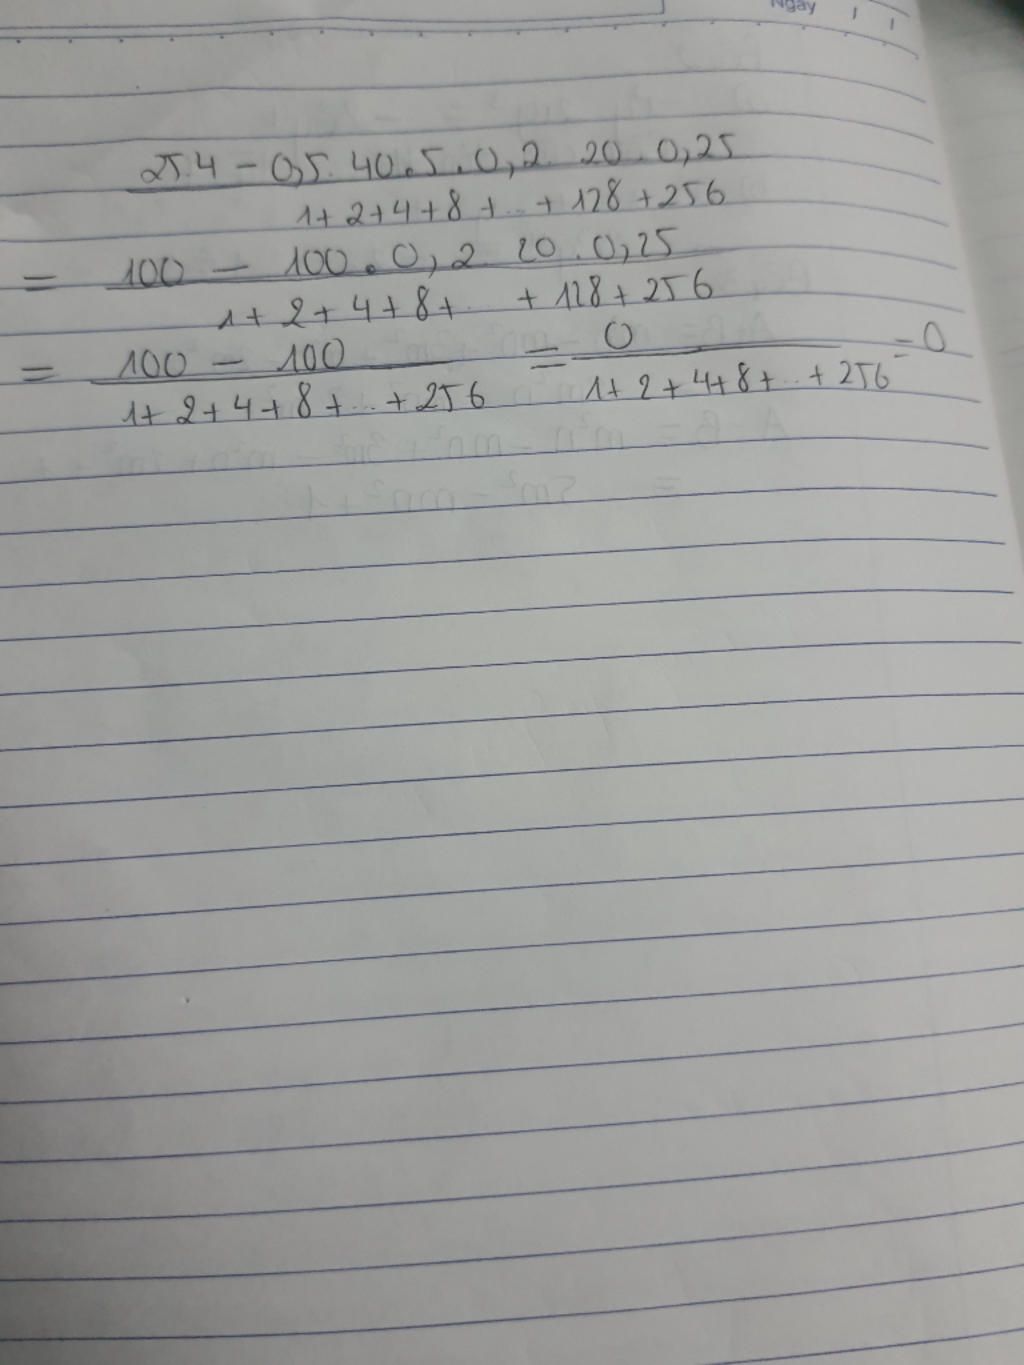 Ngày
25.4 - 0,5. 40.5.0,2. 20.0,25
1+2+4+8+...+128+256
= 100 - 100.0,2 20.0,25
1+2+4+8+... +128+256
= 100 - 100 = 0 = 0
1+2+4+8+...+256 1+2+4+8+...+256